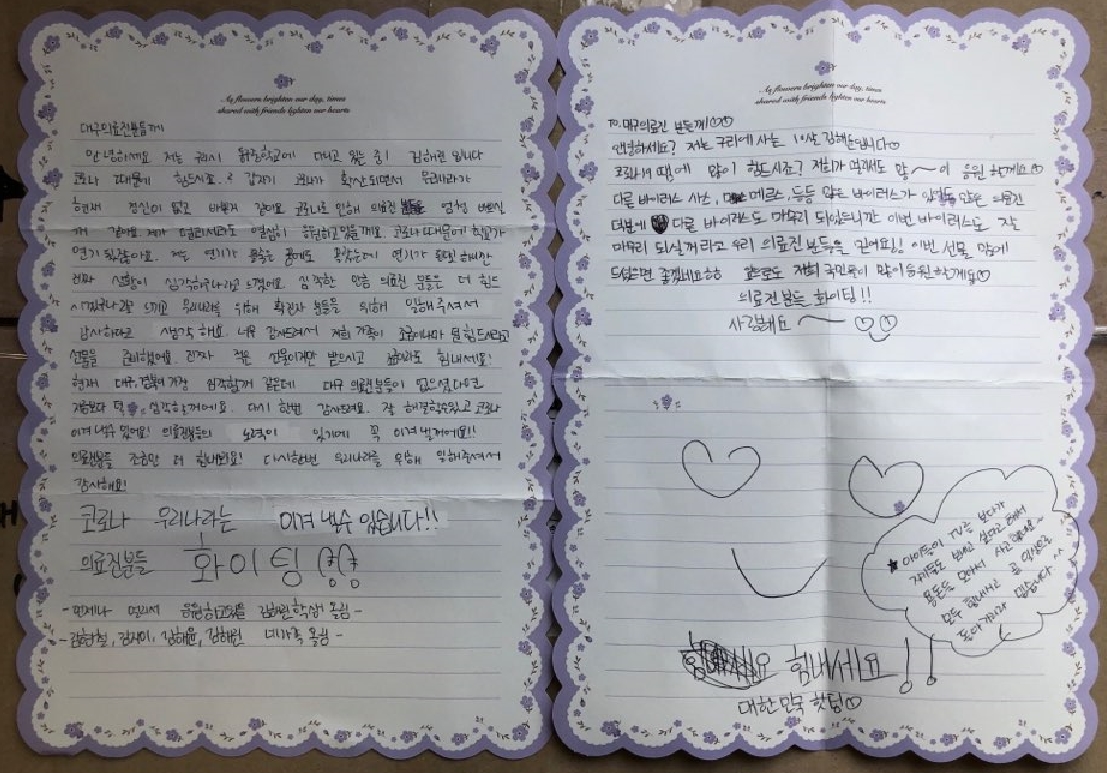 As flowers brighten our day, times
shared with friends lighten our hearts
대구의료진분들께
안녕하세요 저는 구리시 중학교에 다니고 있는 중1 김해린입니다
코로나 때문에 힘드시죠..? 갑자기 코로나가 확산되면서 우리나라가
현재 정신이 없고 바쁘게 코로나로 인해 의료진분들 엄청 바쁘실
꺼 같아요 제가 멀리서라도 열심히 응원하고 있을께요. 코로나 때문에 학교가
연기됐잖아요. 저는 연기가 연기가 또
상황이 심각하구나라고 느꼈어요 심각한 만큼 의료진 분들은 더 힘드
시겠구나라고 느끼고 우리나라를 위해 확진자 분들을 위해 일해주셔서
감사하다고 생각해요. 너무 감사드려서 저희 가족이 조금이나마 힘드시라고
선물을 준비했어요 진짜 작은 선물이지만 받으시고 힘내세요!
현재 대구, 경북이 가장 심각한게 같은데 대구 의료진분들이 없으셨다면
지금보다 더 심각할꺼에요. 다시 한번 감사드려요. 잘 해결할수있고 코로나
이겨낼수 있어요! 의료진분들의 노력이 있기에 꼭 이겨낼꺼에요!!
의료진분들 조금만 더 힘내세요! 다시한번 우리나라를 위해 일해주셔서
감사해요!
코로나 우리나라는 이겨낼수 있습니다!!
의료진분들 화이팅
-언제나 멀리서 응원하고있을 김해린학생 올림-
김해윤, 김해린 가족 올림-
As flowers brighten our day, times
shared with friends lighten our hearts
To. 대구의료진 분들께♡♡
안녕하세요? 저는 구리에 사는 10살 김해윤입니다♡
코로나19 땜에 많이 힘드시죠? 저희가 여기서도 많~이 응원할께요♡
다른 바이러스 사스, 메르스 등등 많은 바이러스가 많은 의료진
덕분에 다른 바이러스도 마무리 되었으니깐 이번 바이러스도 잘
마무리 되실꺼라고 우리 의료진분들을 믿어요!! 이번 선물 맘에
드셨으면 좋겠네요ㅎㅎ 앞으로도 저희 국민들이 많이 응원할께요♡
의료진 분들 화이팅!!
사랑해요~
★ 아이들이 TV를 보다가
자기들도 보내고 싶다고 해서
용돈을 모아서 사고 했네요~
모두 힘내시고 곧 일상으로
돌아가리라 믿습니다^^
힘내세요!!
대한민국 핫팅♡